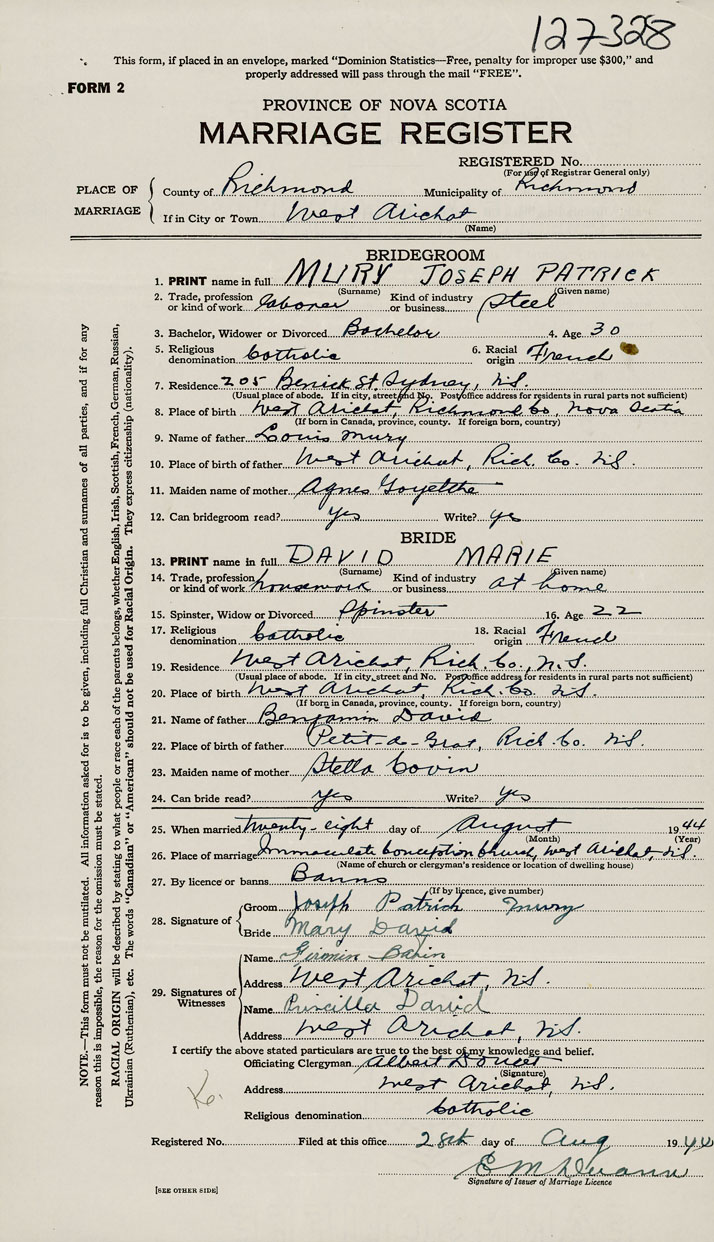 127328
This form, if placed in an envelope, marked "Dominion Statistics—Free, penalty for improper use $300," and
properly addressed will pass through the mail "FREE".
FORM 2
PROVINCE OF NOVA SCOTIA
MARRIAGE REGISTER
REGISTERED No.
(For use of Registrar General only)
PLACE OF MARRIAGE
County of Richmond Municipality of Richmond
If in City or Town West Arichat
(Name)
BRIDEGROOM
1. PRINT name in full MURY JOSEPH PATRICK
(Surname) (Given name)
2. Trade, profession or kind of work laborer Kind of industry or business steel
3. Bachelor, Widower or Divorced Bachelor 4. Age 30
5. Religious denomination Catholic 6. Racial origin French
7. Residence 205 St. Sydney, N.S.
(Usual place of abode. If in city, street and No. Post office address for residents in rural parts not sufficient)
8. Place of birth West Arichat, Richmond Co, Nova Scotia
(If born in Canada, province, county. If foreign born, country)
9. Name of father Louis Mury
10. Place of birth of father West Arichat, Rich. Co. N.S.
11. Maiden name of mother Agnes
12. Can bridegroom read? yes Write? yes
BRIDE
13. PRINT name in full DAVID MARIE
(Surname) (Given name)
14. Trade, profession or kind of work housework Kind of industry or business at home
15. Spinster, Widow or Divorced Spinster 16. Age 22
17. Religious denomination Catholic 18. Racial origin French
19. Residence West Arichat, Rich. Co., N.S.
(Usual place of abode. If in city, street and No. Post office address for residents in rural parts not sufficient)
20. Place of birth West Arichat, Rich. Co. N.S.
(If born in Canada, province, county. If foreign born, country)
21. Name of father Benjamin David
22. Place of birth of father Petit-de-Grat, Rich. Co. N.S.
23. Maiden name of mother Stella
24. Can bride read? yes Write? yes
25. When married twenty-eight day of August 1944
(Month) (Year)
26. Place of marriage Immaculate Conception Church, West Arichat, N.S.
(Name of church or clergyman's residence or location of dwelling house)
27. By licence or banns Banns
(If by licence, give number)
28. Signature of
Groom Joseph Patrick Mury
Bride Mary David
29. Signatures of Witnesses
Name Firmin
Address West Arichat, N.S.
Name Priscilla David
Address West Arichat, N.S.
I certify the above stated particulars are true to the best of my knowledge and belief.
Officiating Clergyman Albert Doucet
(Signature)
Address West Arichat, N.S.
Religious denomination Catholic
Registered No. Filed at this office 28th day of Aug 1944
Signature of Issuer of Marriage Licence
[SEE OTHER SIDE]
NOTE.—This form must not be mutilated. All information asked for is to be given, including full Christian and surnames of all parties, and if for any
reason this is impossible, the reason for the omission must be stated.
RACIAL ORIGIN will be described by stating to what people or race each of the parents belongs, whether English, Irish, Scottish, French, German, Russian,
Ukrainian (Ruthenian), etc. The words "Canadian" or "American" should not be used for Racial Origin. They express citizenship (nationality).